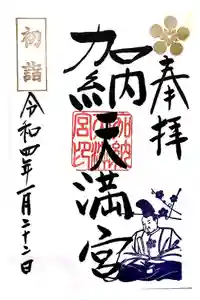 奉拝
加納天満宮
加納天満宮印
初詣
令和四年一月二十二日